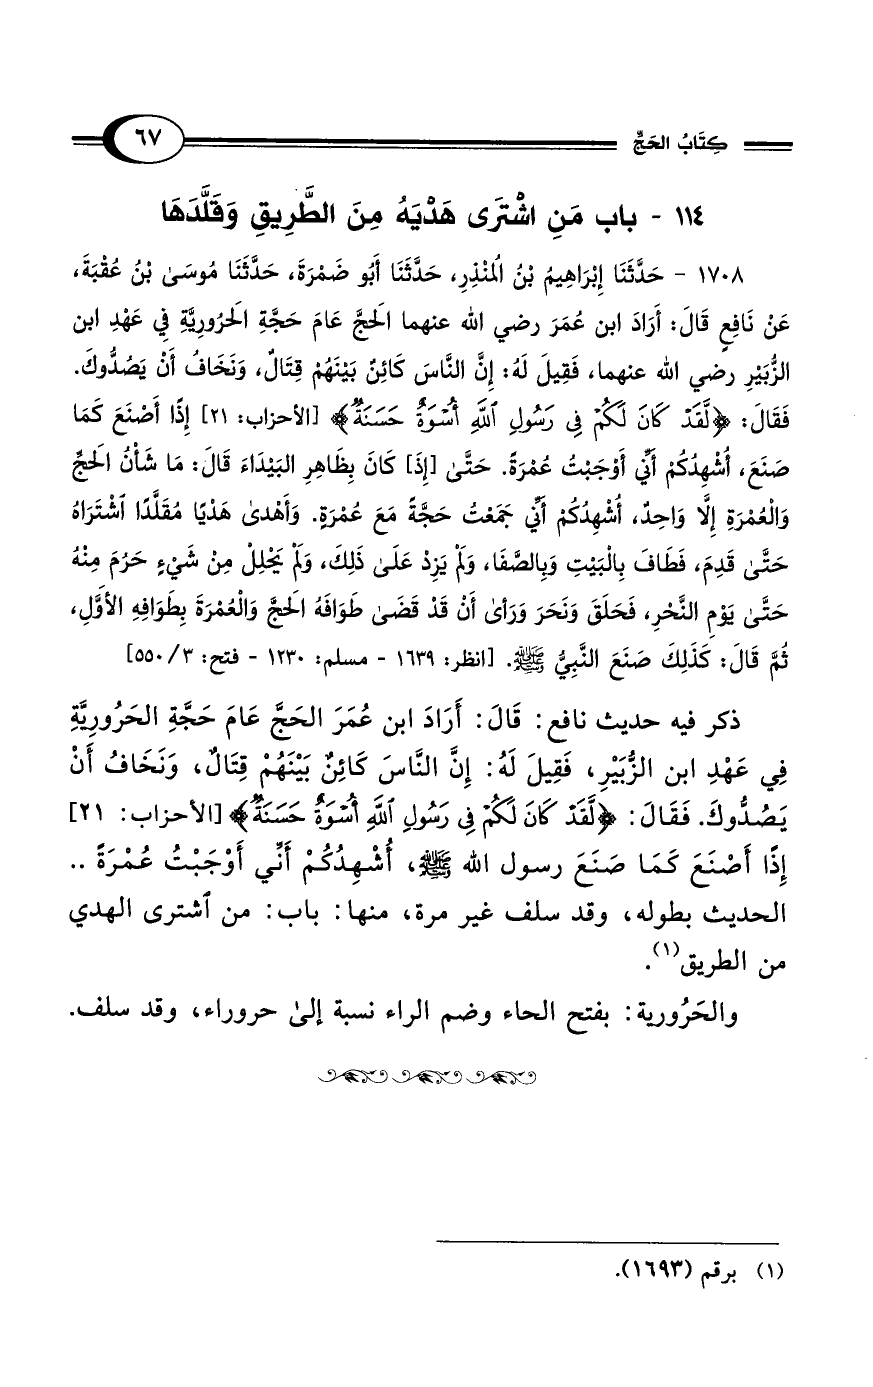 كِتَابُ الحَجِّ
٦٧
١١٤ - باب مَنِ اشْتَرى هَدْيَهُ مِنَ الطَّرِيقِ وَقَلَّدَهَا
١٧٠٨ - حَدَّثَنَا إِبْرَاهِيمُ بْنُ الُمنْذِرِ، حَدَّثَنَا أَبُو ضَمْرَةَ، حَدَّثَنَا مُوسَىٰ بْنُ عُقْبَةَ،
عَنْ نَافِعٍ قَالَ: أَرَادَ ابن عُمَرَ رضي الله عنهما الَحجَّ عَامَ حَجَّةِ الَحرُورِيَّةِ فِي عَهْدِ ابن
الزُّبَيْرِ رضي الله عنهما، فَقِيلَ لَهُ: إِنَّ النَّاسَ كَائِنٌ بَيْنَهُمْ قِتَالٌ، وَنَخَافُ أَنْ يَصُدُّوكَ.
فَقَالَ: ﴿لَّقَدْ كَانَ لَكُمْ فِى رَسُولِ ٱللَّهِ أُسْوَةٌ حَسَنَةٌ﴾ [الأحزاب: ٢١] إِذًا أَصْنَعَ كَمَا
صَنَعَ، أُشْهِدُكُمْ أَنِّي أَوْجَبْتُ عُمْرَةً. حَتَّىٰ [إِذَ] كَانَ بِظَاهِرِ البَيْدَاءَ قَالَ: مَا شَأْنُ الَحجِّ
وَالْعُمْرَةِ إِلَّا وَاحِدٌ، أُشْهِدُكُمْ أَنِّي جَمَعْتُ حَجَّةً مَعَ عُمْرَةٍ. وَأَهْدىٰ هَدْيًا مُقَلَّدًا ٱشْتَرَاهُ
حَتَّىٰ قَدِمَ، فَطَافَ بِالْبَيْتِ وَبِالصَّفَا، وَلَمْ يَزِدْ عَلَىٰ ذَلِكَ، وَلَمْ يَحْلِلْ مِنْ شَيْءٍ حَرُمَ مِنْهُ
حَتَّىٰ يَوْمِ النَّحْرِ، فَحَلَقَ وَنَحَرَ وَرَأىٰ أَنْ قَدْ قَضَىٰ طَوَافَهُ الَحجَّ وَالْعُمْرَةَ بِطَوَافِهِ الأَوَّلِ،
ثُمَّ قَالَ: كَذَلِكَ صَنَعَ النَّبِيُّ ﷺ. [انظر: ١٦٣٩ - مسلم: ١٢٣٠ - فتح: ٣/ ٥٥٠]
ذكر فيه حديث نافع: قَالَ: أَرَادَ ابن عُمَرَ الحَجَّ عَامَ حَجَّةِ الحَرُورِيَّةِ
فِي عَهْدِ ابن الزُّبَيْرِ، فَقِيلَ لَهُ: إِنَّ النَّاسَ كَائِنٌ بَيْنَهُمْ قِتَالٌ، وَنَخَافُ أَنْ
يَصُدُّوكَ. فَقَالَ: ﴿لَّقَدْ كَانَ لَكُمْ فِى رَسُولِ ٱللَّهِ أُسْوَةٌ حَسَنَةٌ﴾ [الأحزاب: ٢١]
إِذًا أَصْنَعَ كَمَا صَنَعَ رسول الله ﷺ، أُشْهِدُكُمْ أَنِّي أَوْجَبْتُ عُمْرَةً ..
الحديث بطوله، وقد سلف غير مرة، منها: باب: من ٱشترى الهدي
من الطريق(١).
والحَرُورية: بفتح الحاء وضم الراء نسبة إلىٰ حروراء، وقد سلف.
(١) برقم (١٦٩٣).